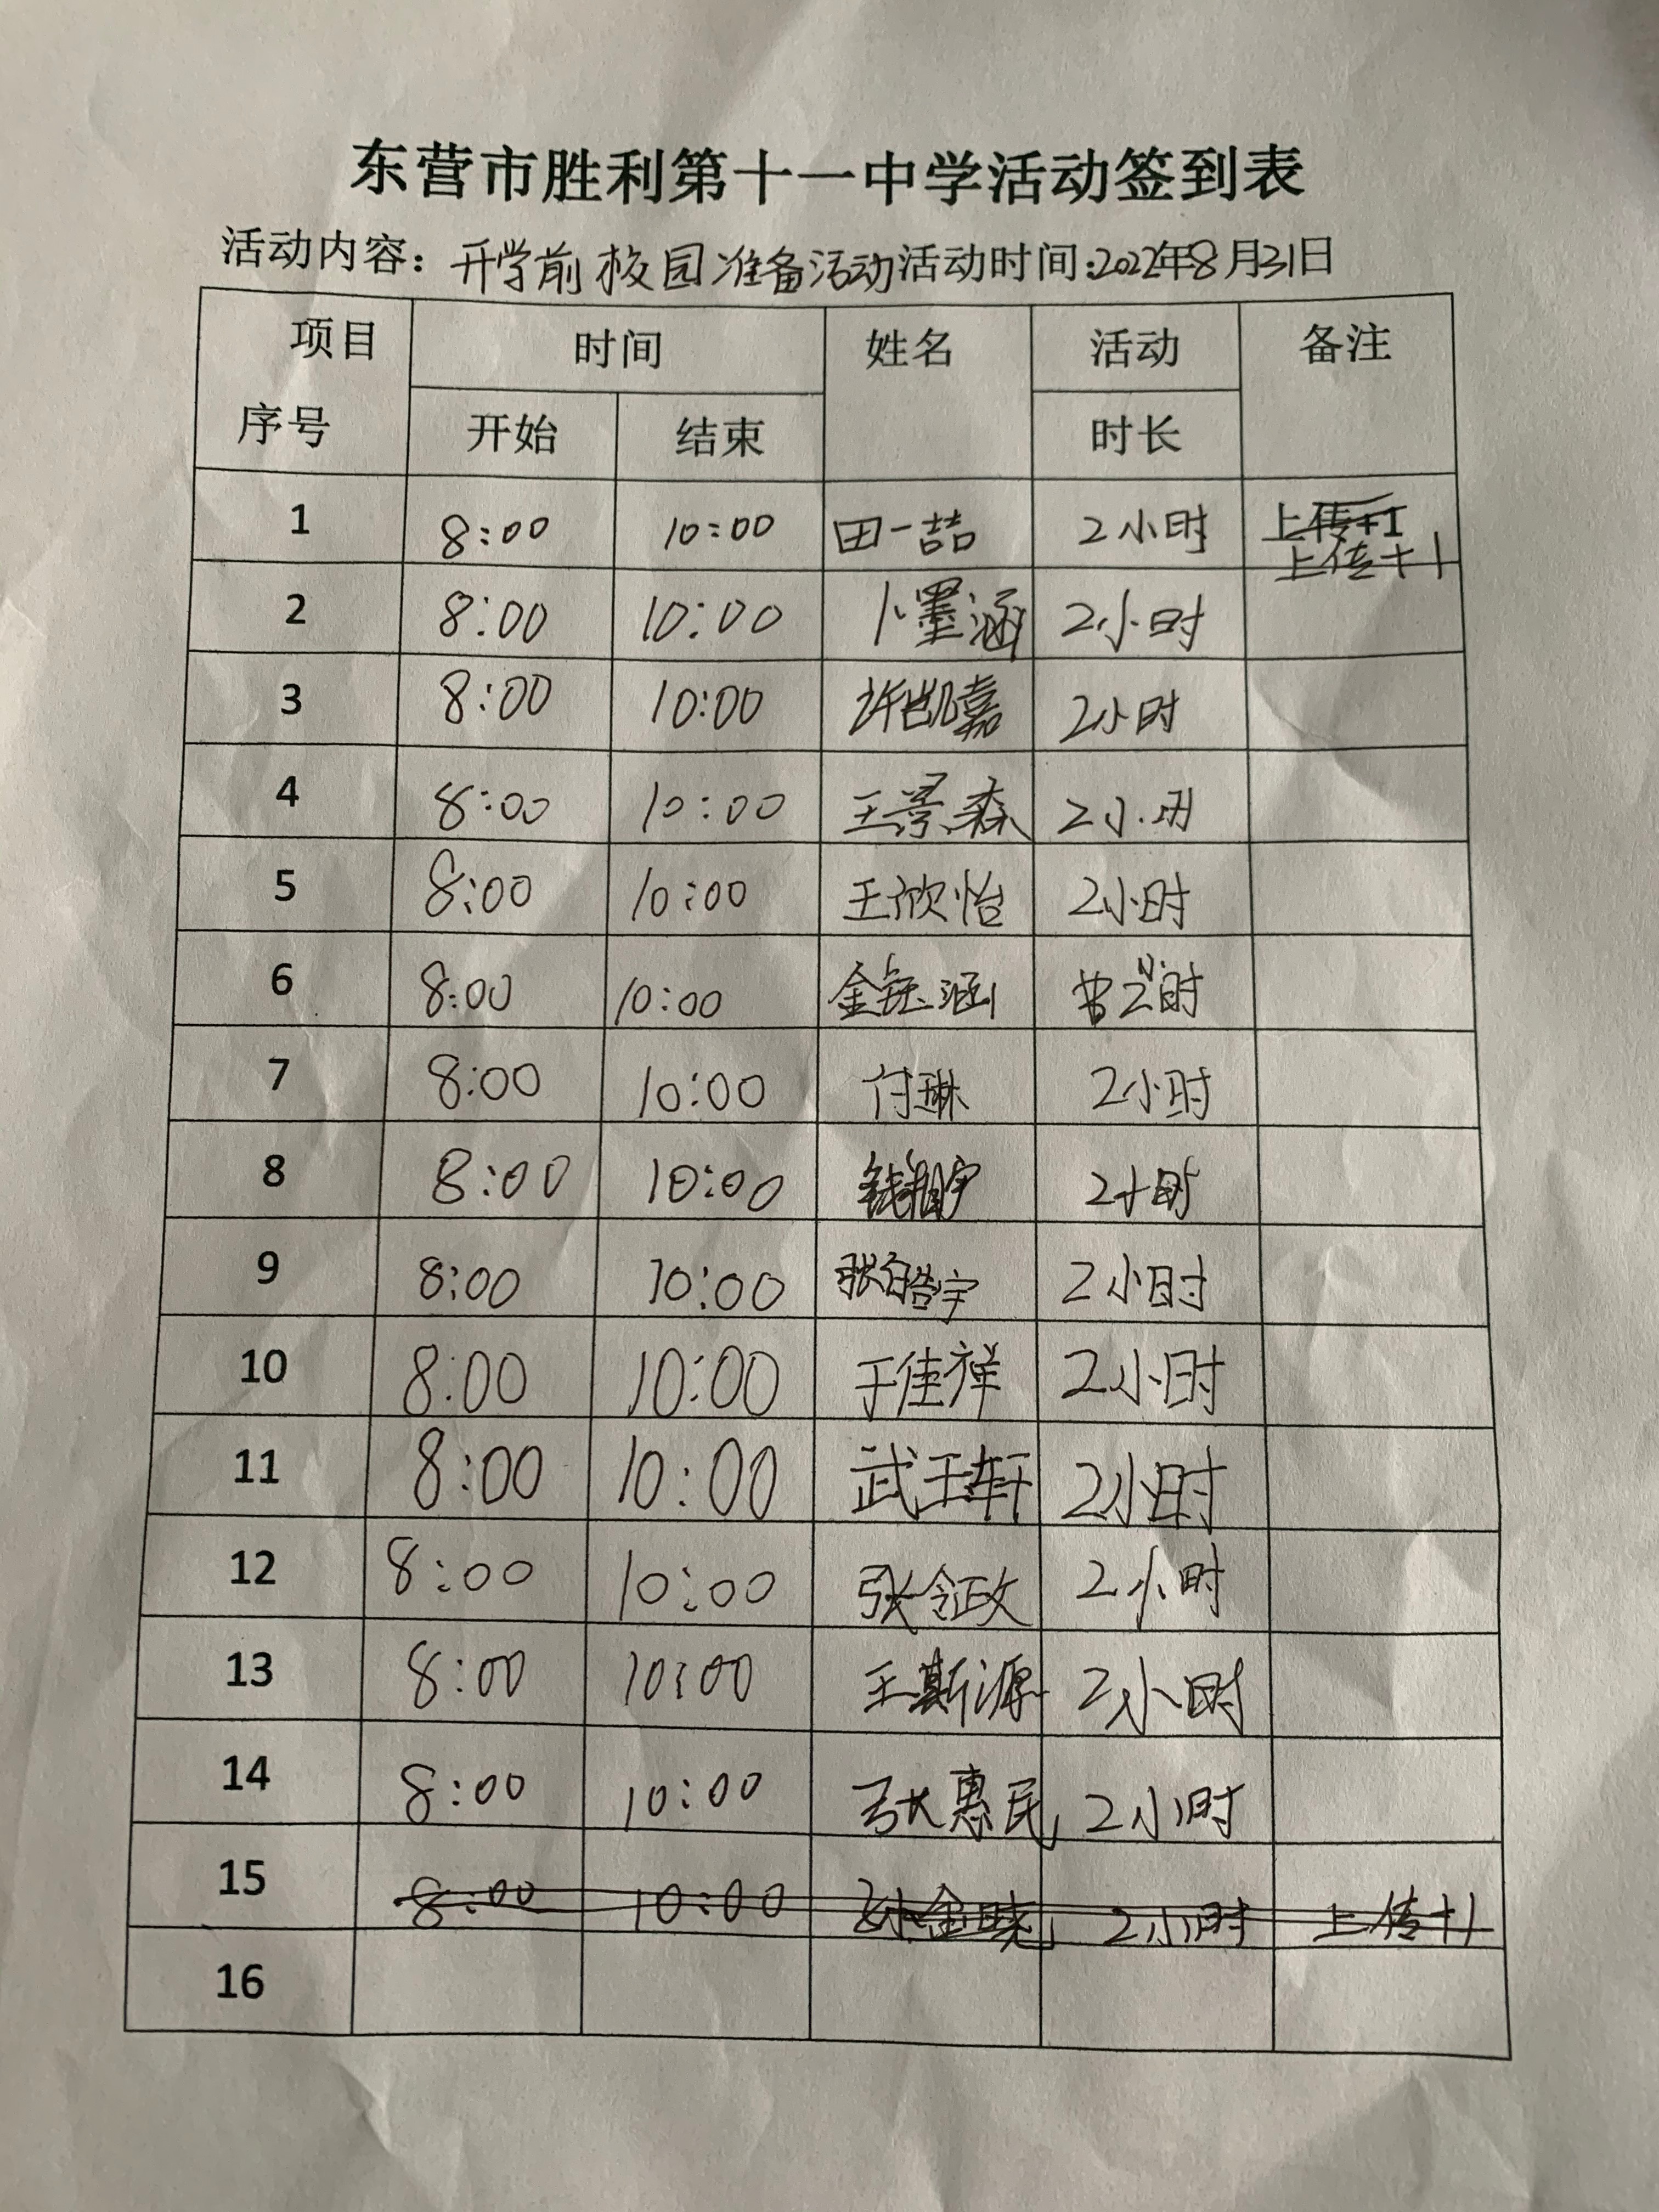 东营市胜利第十一中学活动签到表
活动内容：开学前校园准备活动 活动时间：2022年8月31日
项目 时间 姓名 活动 备注
序号 开始 结束 时长
1 8:00 10:00 田一喆 2小时 上传+1
上传+1
2 8:00 10:00 卜墨涵 2小时
3 8:00 10:00 许凯嘉 2小时
4 8:00 10:00 王景森 2小时
5 8:00 10:00 王欣怡 2小时
6 8:00 10:00 金钰涵 2小时
7 8:00 10:00 付琳 2小时
8 8:00 10:00 2小时
9 8:00 10:00 张皓宇 2小时
10 8:00 10:00 于佳祥 2小时
11 8:00 10:00 武王轩 2小时
12 8:00 10:00 2小时
13 8:00 10:00 王斯源 2小时
14 8:00 10:00 张惠民 2小时
15 8:00 10:00 孙金晓 2小时 上传+1
16